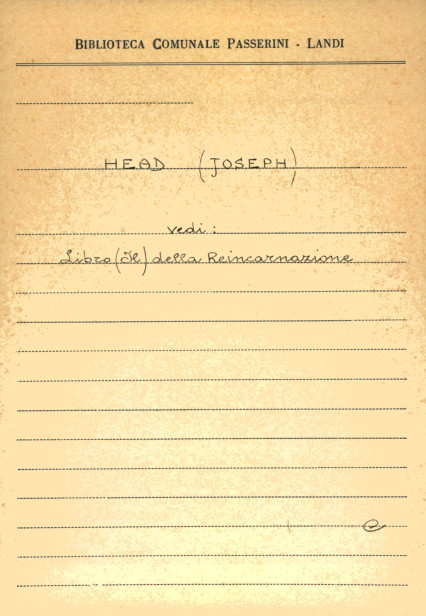 BIBLIOTECA COMUNALE PASSERINI - LANDI
HEAD (JOSEPH)
vedi:
Libro (Il) della Reincarnazione
e